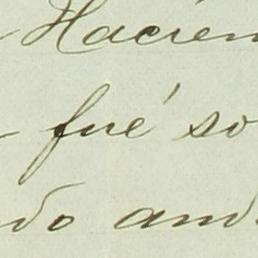 Hacien
fué so
do and